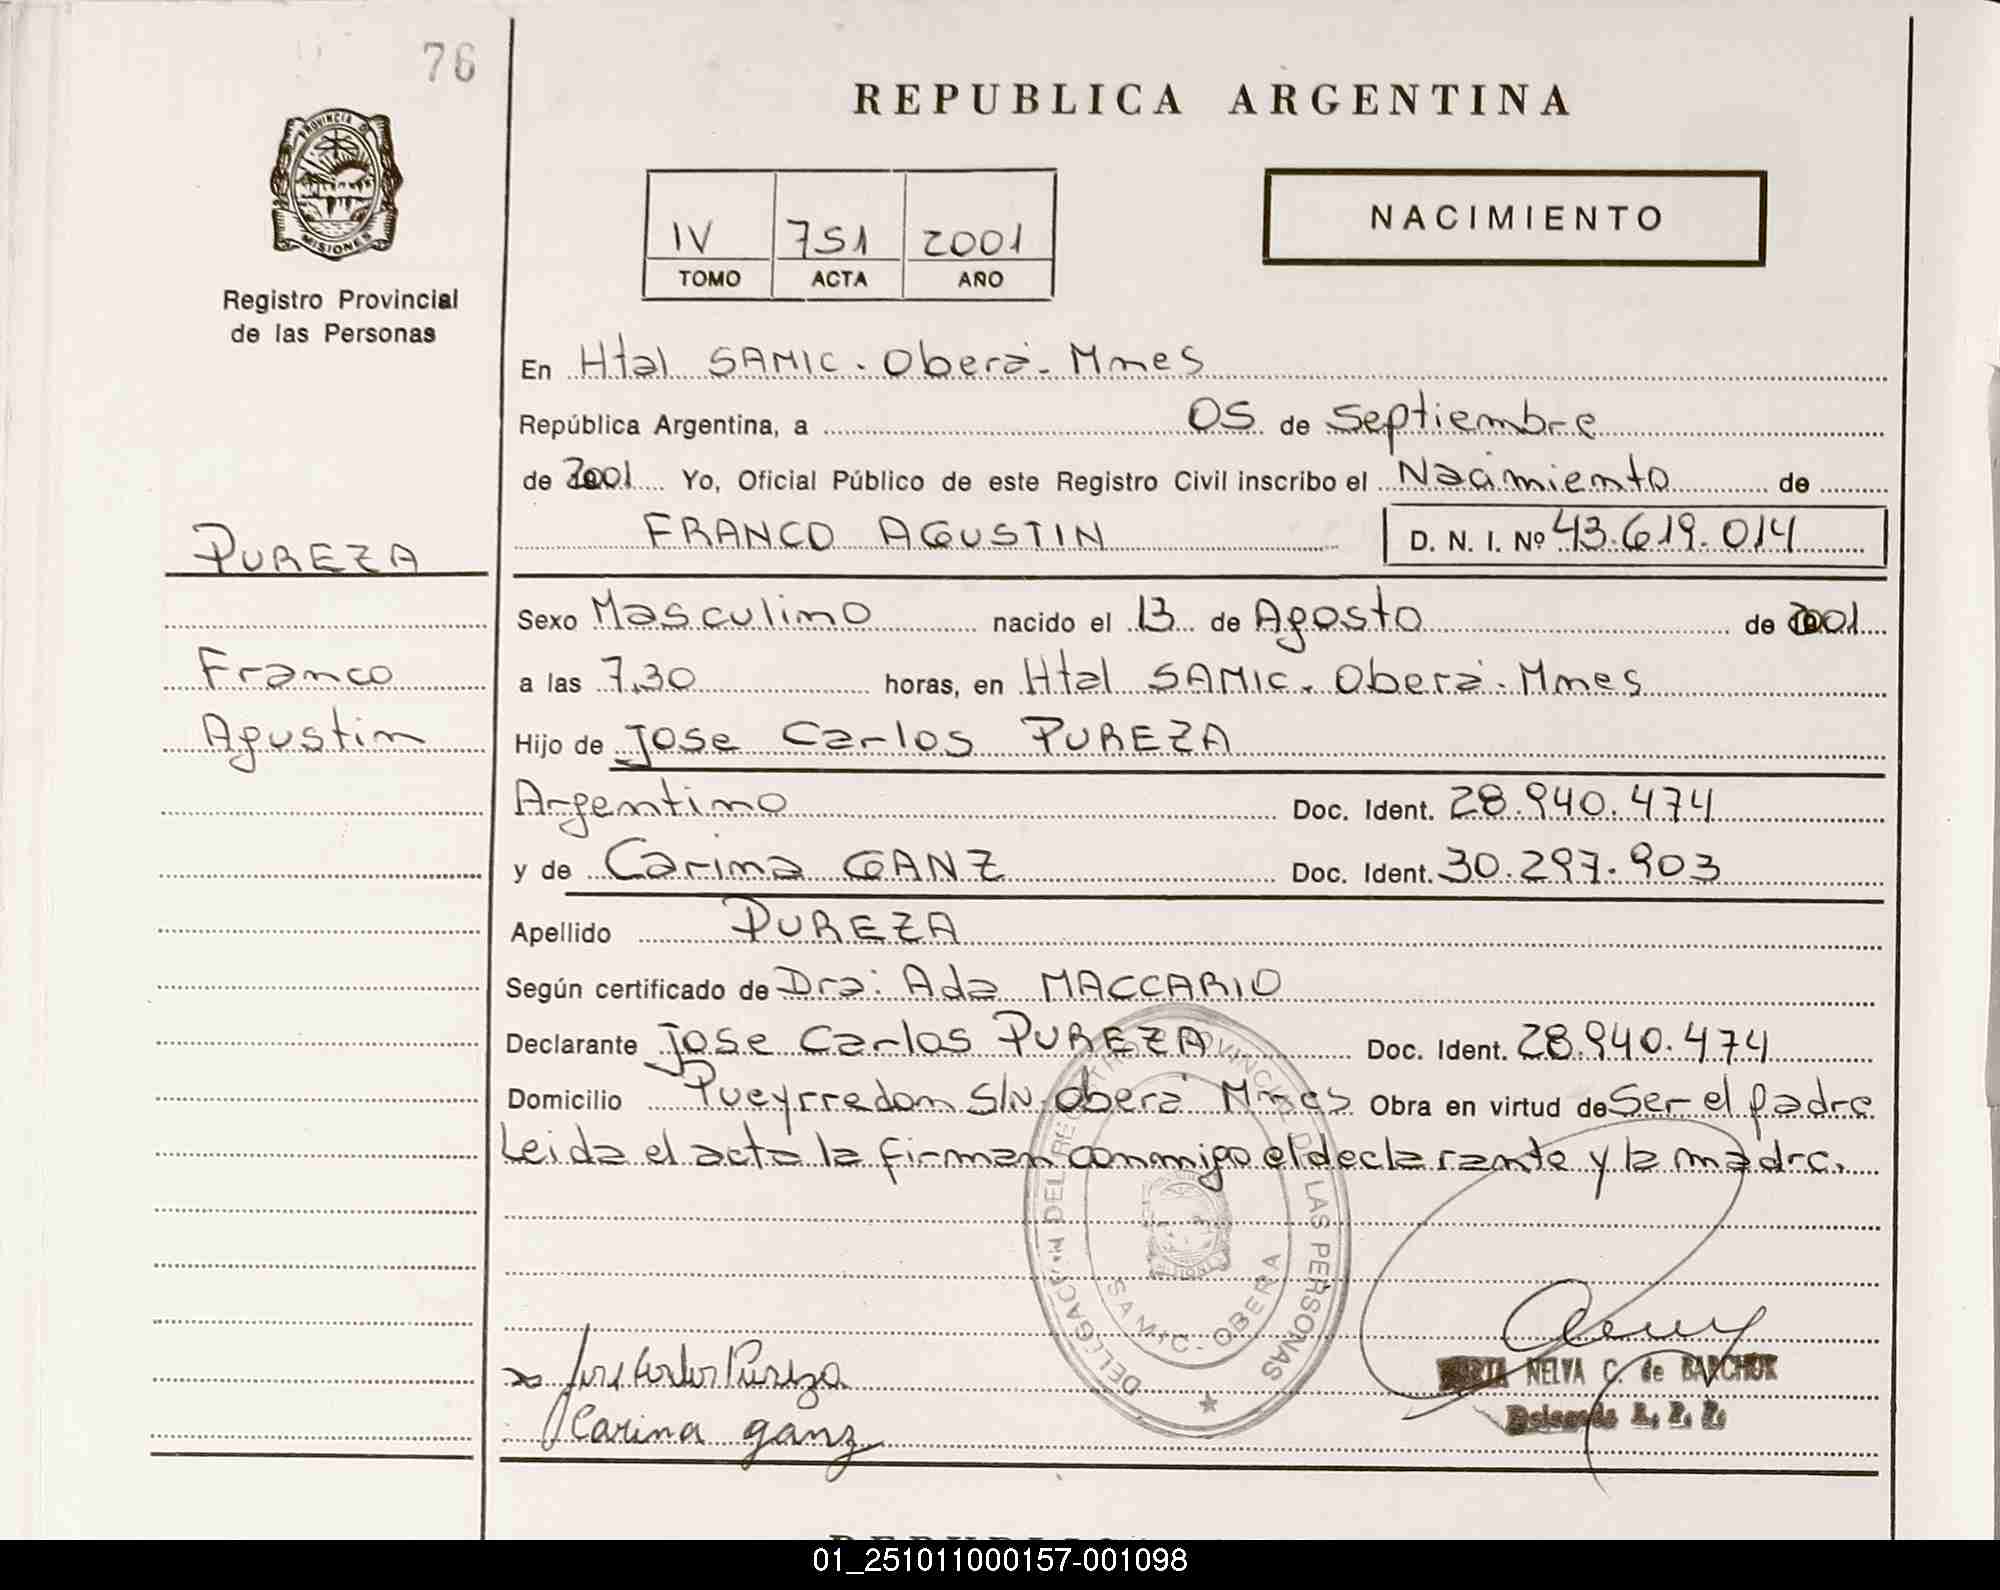 76
REPUBLICA ARGENTINA
PROVINCIA D
MISIONES
Registro Provincial
de las Personas
IV 751 2001
TOMO ACTA AÑO
NACIMIENTO
En Htal SAMIC. Oberá. Mnes
República Argentina, a 05 de Septiembre
de 2001 Yo, Oficial Público de este Registro Civil inscribo el Nacimiento de
FRANCO AGUSTIN D. N. I. Nº 43.619.014
PUREZA
Franco
Agustin
Sexo Masculino nacido el 13 de Agosto de 2001
a las 7,30 horas, en Htal SAMIC. Oberá. Mnes
Hijo de Jose Carlos PUREZA
Argentino Doc. Ident. 28.940.474
y de Carina GANZ Doc. Ident. 30.297.903
Apellido PUREZA
Según certificado de Dra: Ada MACCARIO
Declarante Jose Carlos PUREZA Doc. Ident. 28.940.474
Domicilio Pueyrredon S/N. Oberá Mnes Obra en virtud de Ser el padre
Leida el acta la firman conmigo el declarante y la madre.
DELEGACION DEL REGISTRO PROVINCIAL DE LAS PERSONAS
SAMIC - OBERA
Jose Carlos Pureza
Carina ganz
NELVA C. de BARCHUK
Delegada R. P. P.
01_251011000157-001098